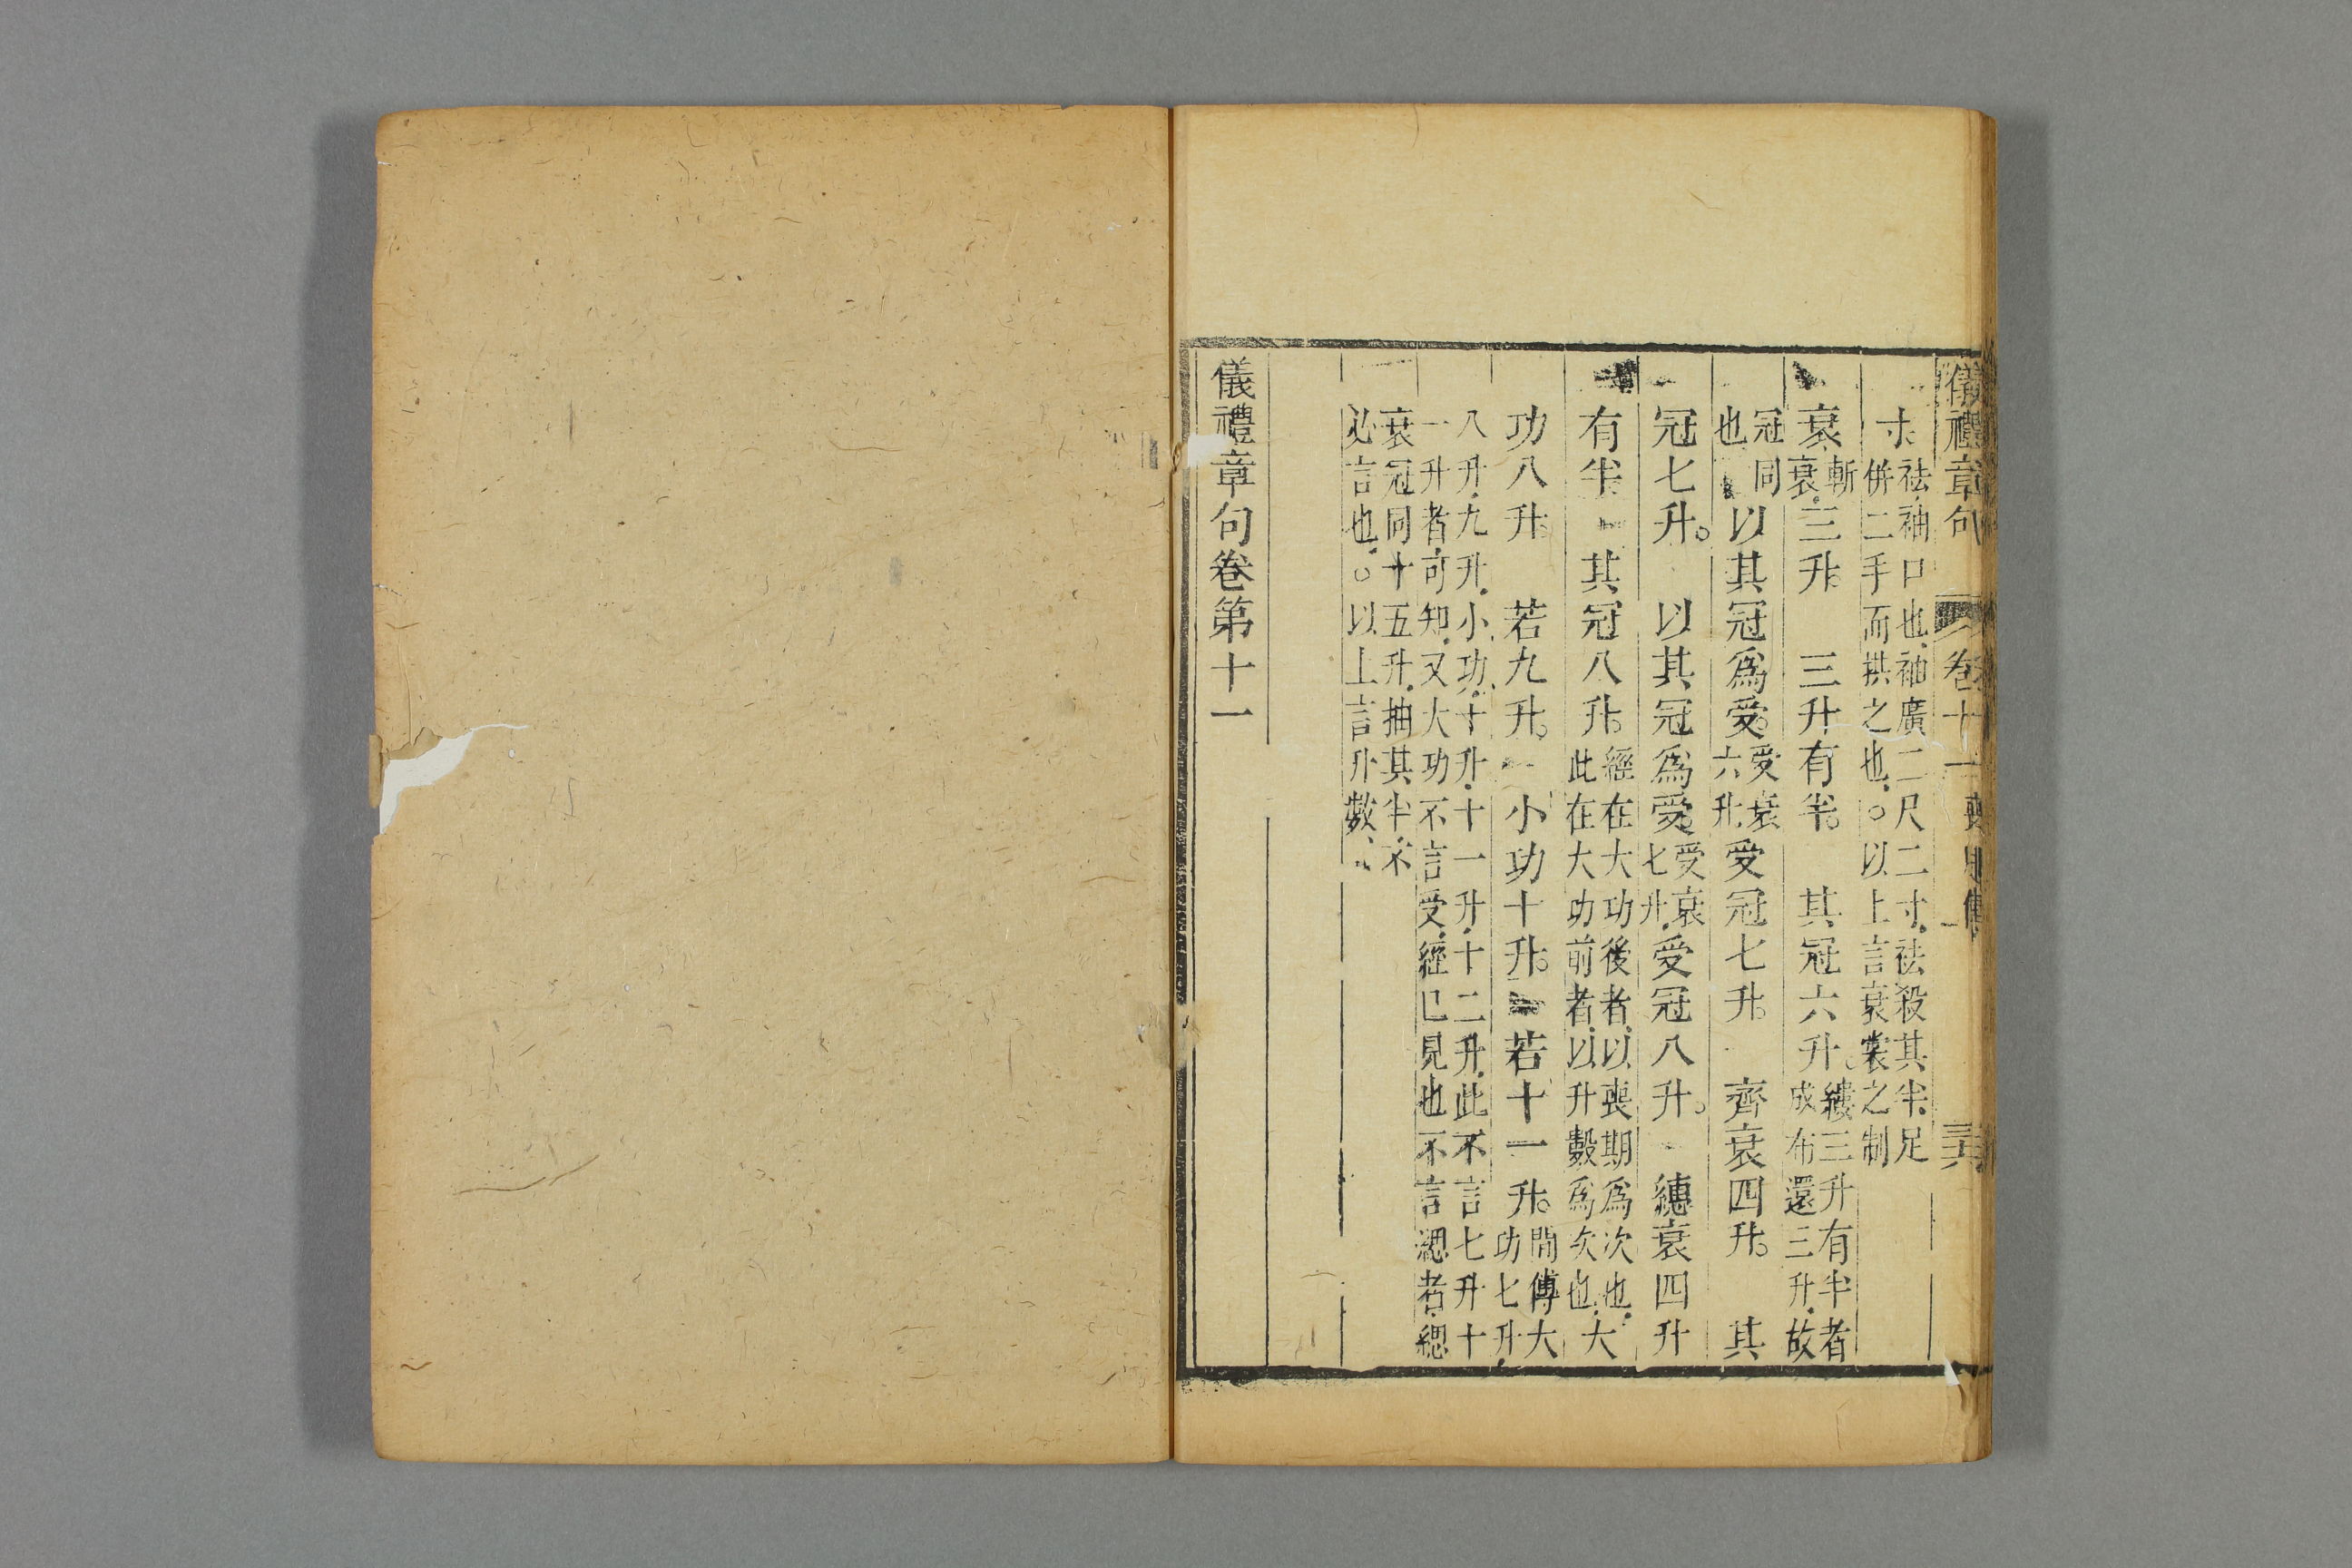 儀禮章句 卷十一 喪服傳 三六
寸。祛、袖口也、袖廣二尺二寸、祛殺其半、足
併二手而拱之也、○以上言衰裳之制
衰、斬衰、三升。三升有半。其冠六升。縷三升有半者成布還三升、故
冠同也以其冠爲受。受衰六升、受冠七升。齊衰四升。其
冠七升。以其冠爲受。受衰七升、受冠八升。繐衰四升
有半其冠八升。經在大功後者、以喪期爲次也、此在大功前者、以升數爲次也、大
功八升。若九升。小功十升。若十一升。間傳大功七升、
八升、九升、小功、十升、十一升、十二升、此不言七升十
一升者、可知、又大功不言受、經已見也、不言緦者、緦
衰冠同十五升、抽其半、不
必言也、○以上言升數、
儀禮章句卷第十一